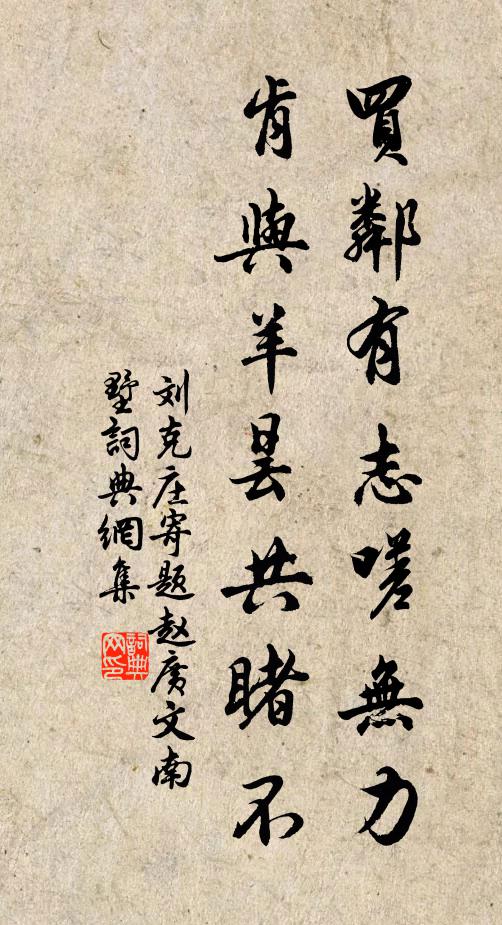 買鄰有志嗟無力
肯與羊曇共睹不
刘克庄寄题赵廣文南
墅詞典網集
詞典
网印